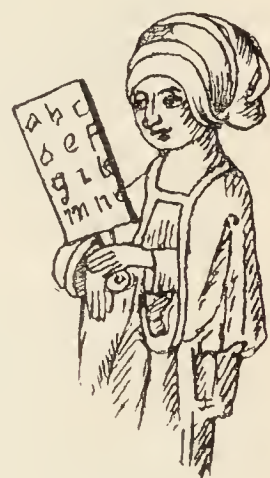 a b c
d e f
g i
m n